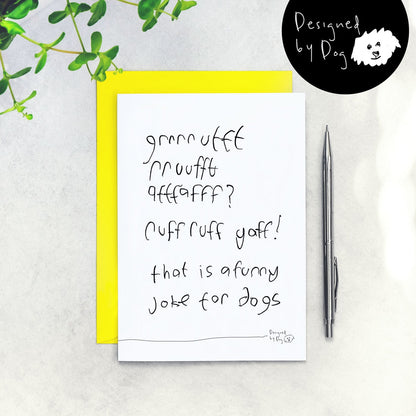 Designed
by Dog
grrrrufft
rruufft
affafff?
ruff ruff yaff!
that is a funny
joke for dogs
Designed
by Dog